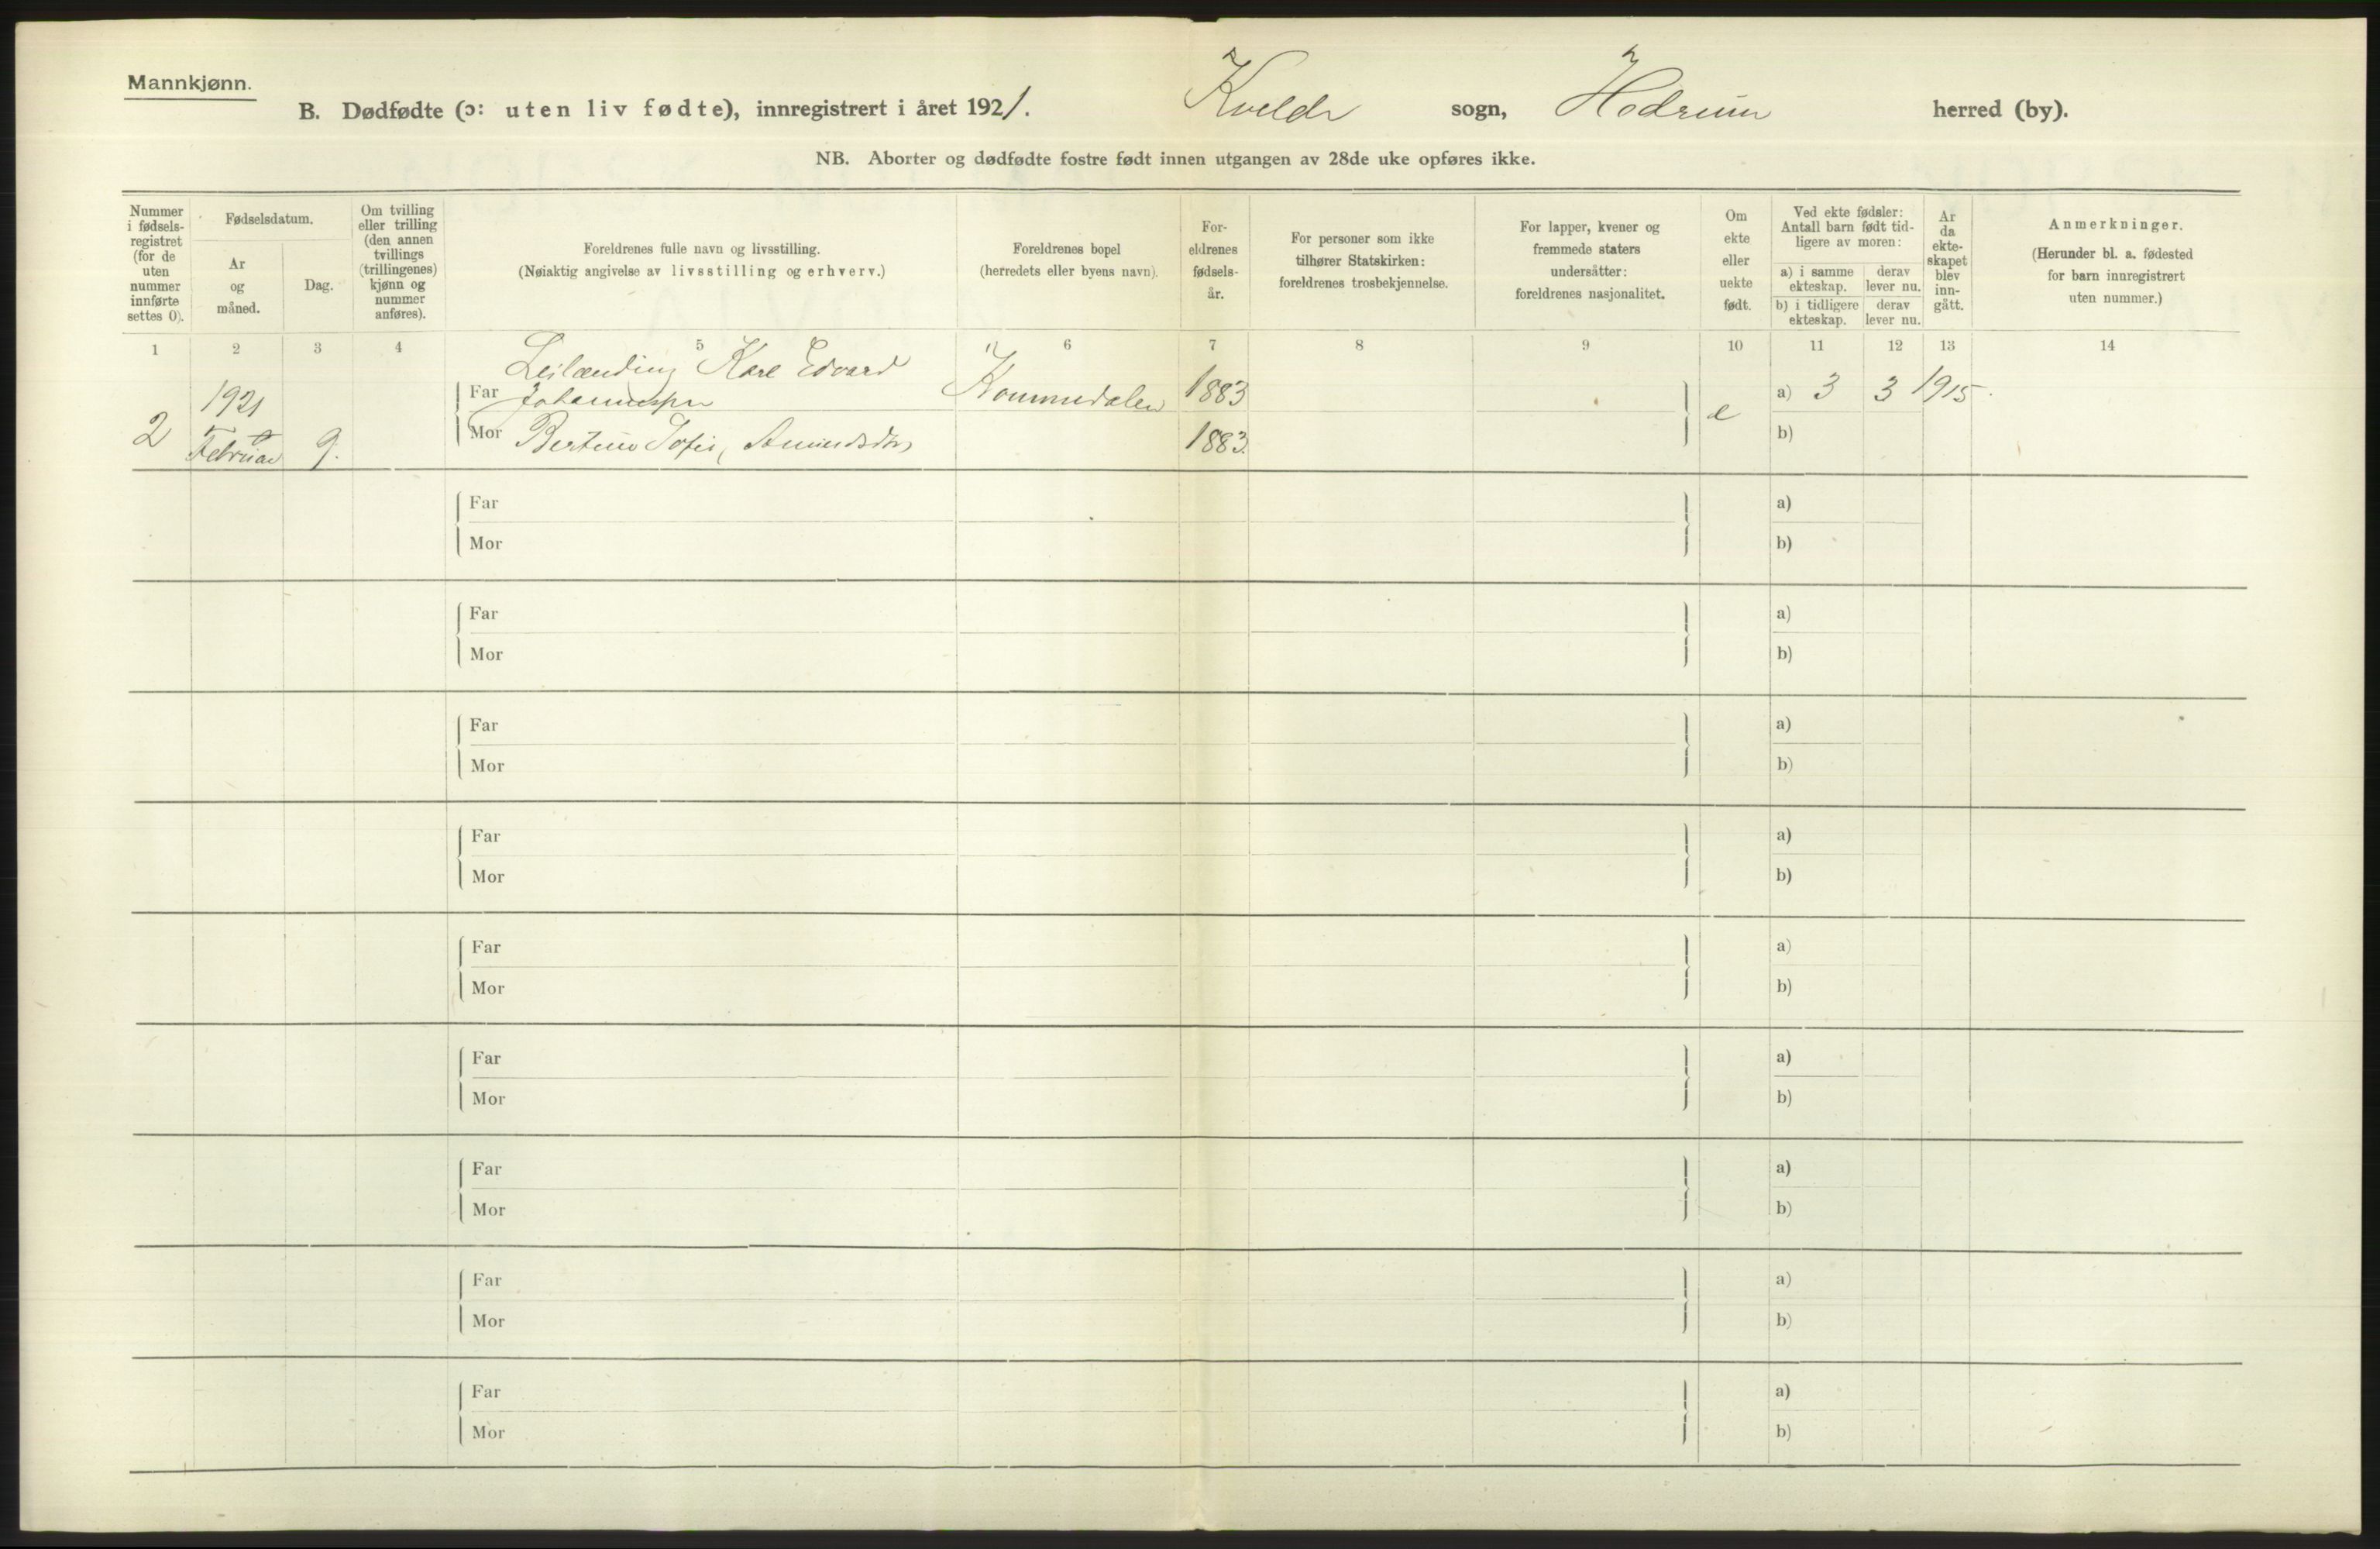 Mannkjønn.
B. Dødfødte (ɔ: uten liv fødte), innregistrert i året 1921. Kvelde sogn, Hedrum herred (by).
NB. Aborter og dødfødte fostre født innen utgangen av 28de uke opføres ikke.
Nummer i fødsels-registret (for de uten nummer innførte settes 0).
Fødselsdatum.
Ar og måned.
Dag.
Om tvilling eller trilling (den annen tvillings (trillingenes) kjønn og nummer anføres).
Foreldrenes fulle navn og livsstilling.
(Nøiaktig angivelse av livsstilling og erhverv.)
Foreldrenes bopel
(herredets eller byens navn).
For-eldrenes fødsels-år.
For personer som ikke tilhører Statskirken: foreldrenes trosbekjennelse.
For lapper, kvener og fremmede staters undersåtter: foreldrenes nasjonalitet.
Om ekte eller uekte født.
Ved ekte fødsler: Antall barn født tid-ligere av moren:
a) i samme ekteskap.
derav lever nu.
b) i tidligere ekteskap.
derav lever nu.
Ar da ekte-skapet blev inn-gått.
Anmerkninger.
(Herunder bl. a. fødested for barn innregistrert uten nummer.)
1 2 3 4 5 6 7 8 9 10 11 12 13 14
Leilænding Karl Edvard
2 1921 Februar 9. Far Johannessen 1883 e a) 3 3 1915.
Mor Bertine Sofie Amundsdtr 1883. b)
Far a)
Mor b)
Far a)
Mor b)
Far a)
Mor b)
Far a)
Mor b)
Far a)
Mor b)
Far a)
Mor b)
Far a)
Mor b)
Far a)
Mor b)
Far a)
Mor b)